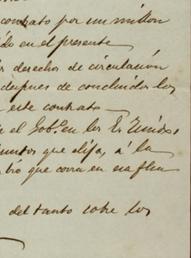 contrato por un millon
do en el presente
derechos de circulación
despues de concluidos los
este contrato
el Gobº en los Es. Unidos
puntos que elija, á la
bio que corra en esa fha
del tanto sobre los